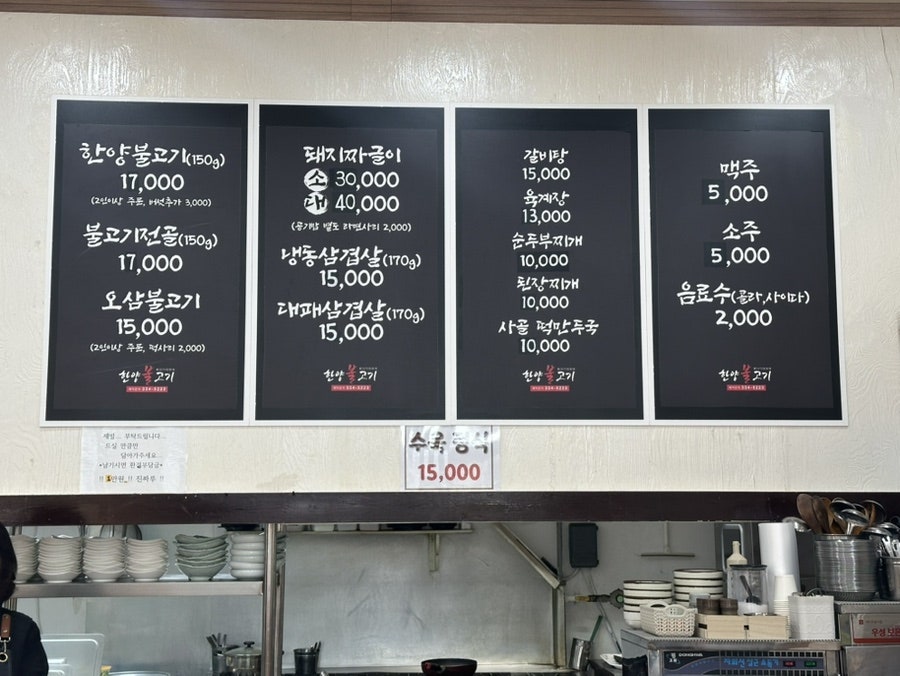 한양불고기(150g)
17,000
(2인이상 주문, 버섯추가 3,000)
불고기전골(150g)
17,000
오삼불고기
15,000
(2인이상 주문, 떡사리 2,000)
한양불고기
돼지짜글이
소 30,000
대 40,000
(공기밥 별도 라면사리 2,000)
냉동삼겹살(170g)
15,000
대패삼겹살(170g)
15,000
한양불고기
갈비탕
15,000
육계장
13,000
순두부찌개
10,000
된장찌개
10,000
사골 떡만두국
10,000
한양불고기
맥주
5,000
소주
5,000
음료수(콜라,사이다)
2,000
한양불고기
제발... 부탁드립니다...
드실 만큼만
담아가주세요
*남기시면 환경부담금*
!! 5만원 !! 진짜루 !!
수육정식
15,000